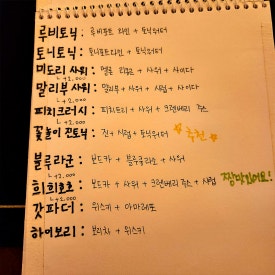 루비토닉 : 루비포트 와인 + 토닉워터
토니토닉 : 토니포트와인 + 토닉워터
미도리 사워 : 멜론 리큐르 + 사워 + 사이다
ㄴ+2,000
말리부 사워 : 말리부 + 사워 + 사이다
ㄴ+2,000
피치크러시 : 피치트리 + 사워 + 크랜베리 주스
ㄴ+2,000
꽃놀이 진토닉 : 진 + 시럽 + 토닉워터 ☆추천☆
블루라군 : 보드카 + 블루큐라소 + 사워
ㄴ+2,000
희희호호 : 보드카 + 사워 + 크랜베리 주스 + 시럽 짱맛있어요!
ㄴ+2,000
갓파더 : 위스키 + 아마레또
하이보리 : 보리차 + 위스키